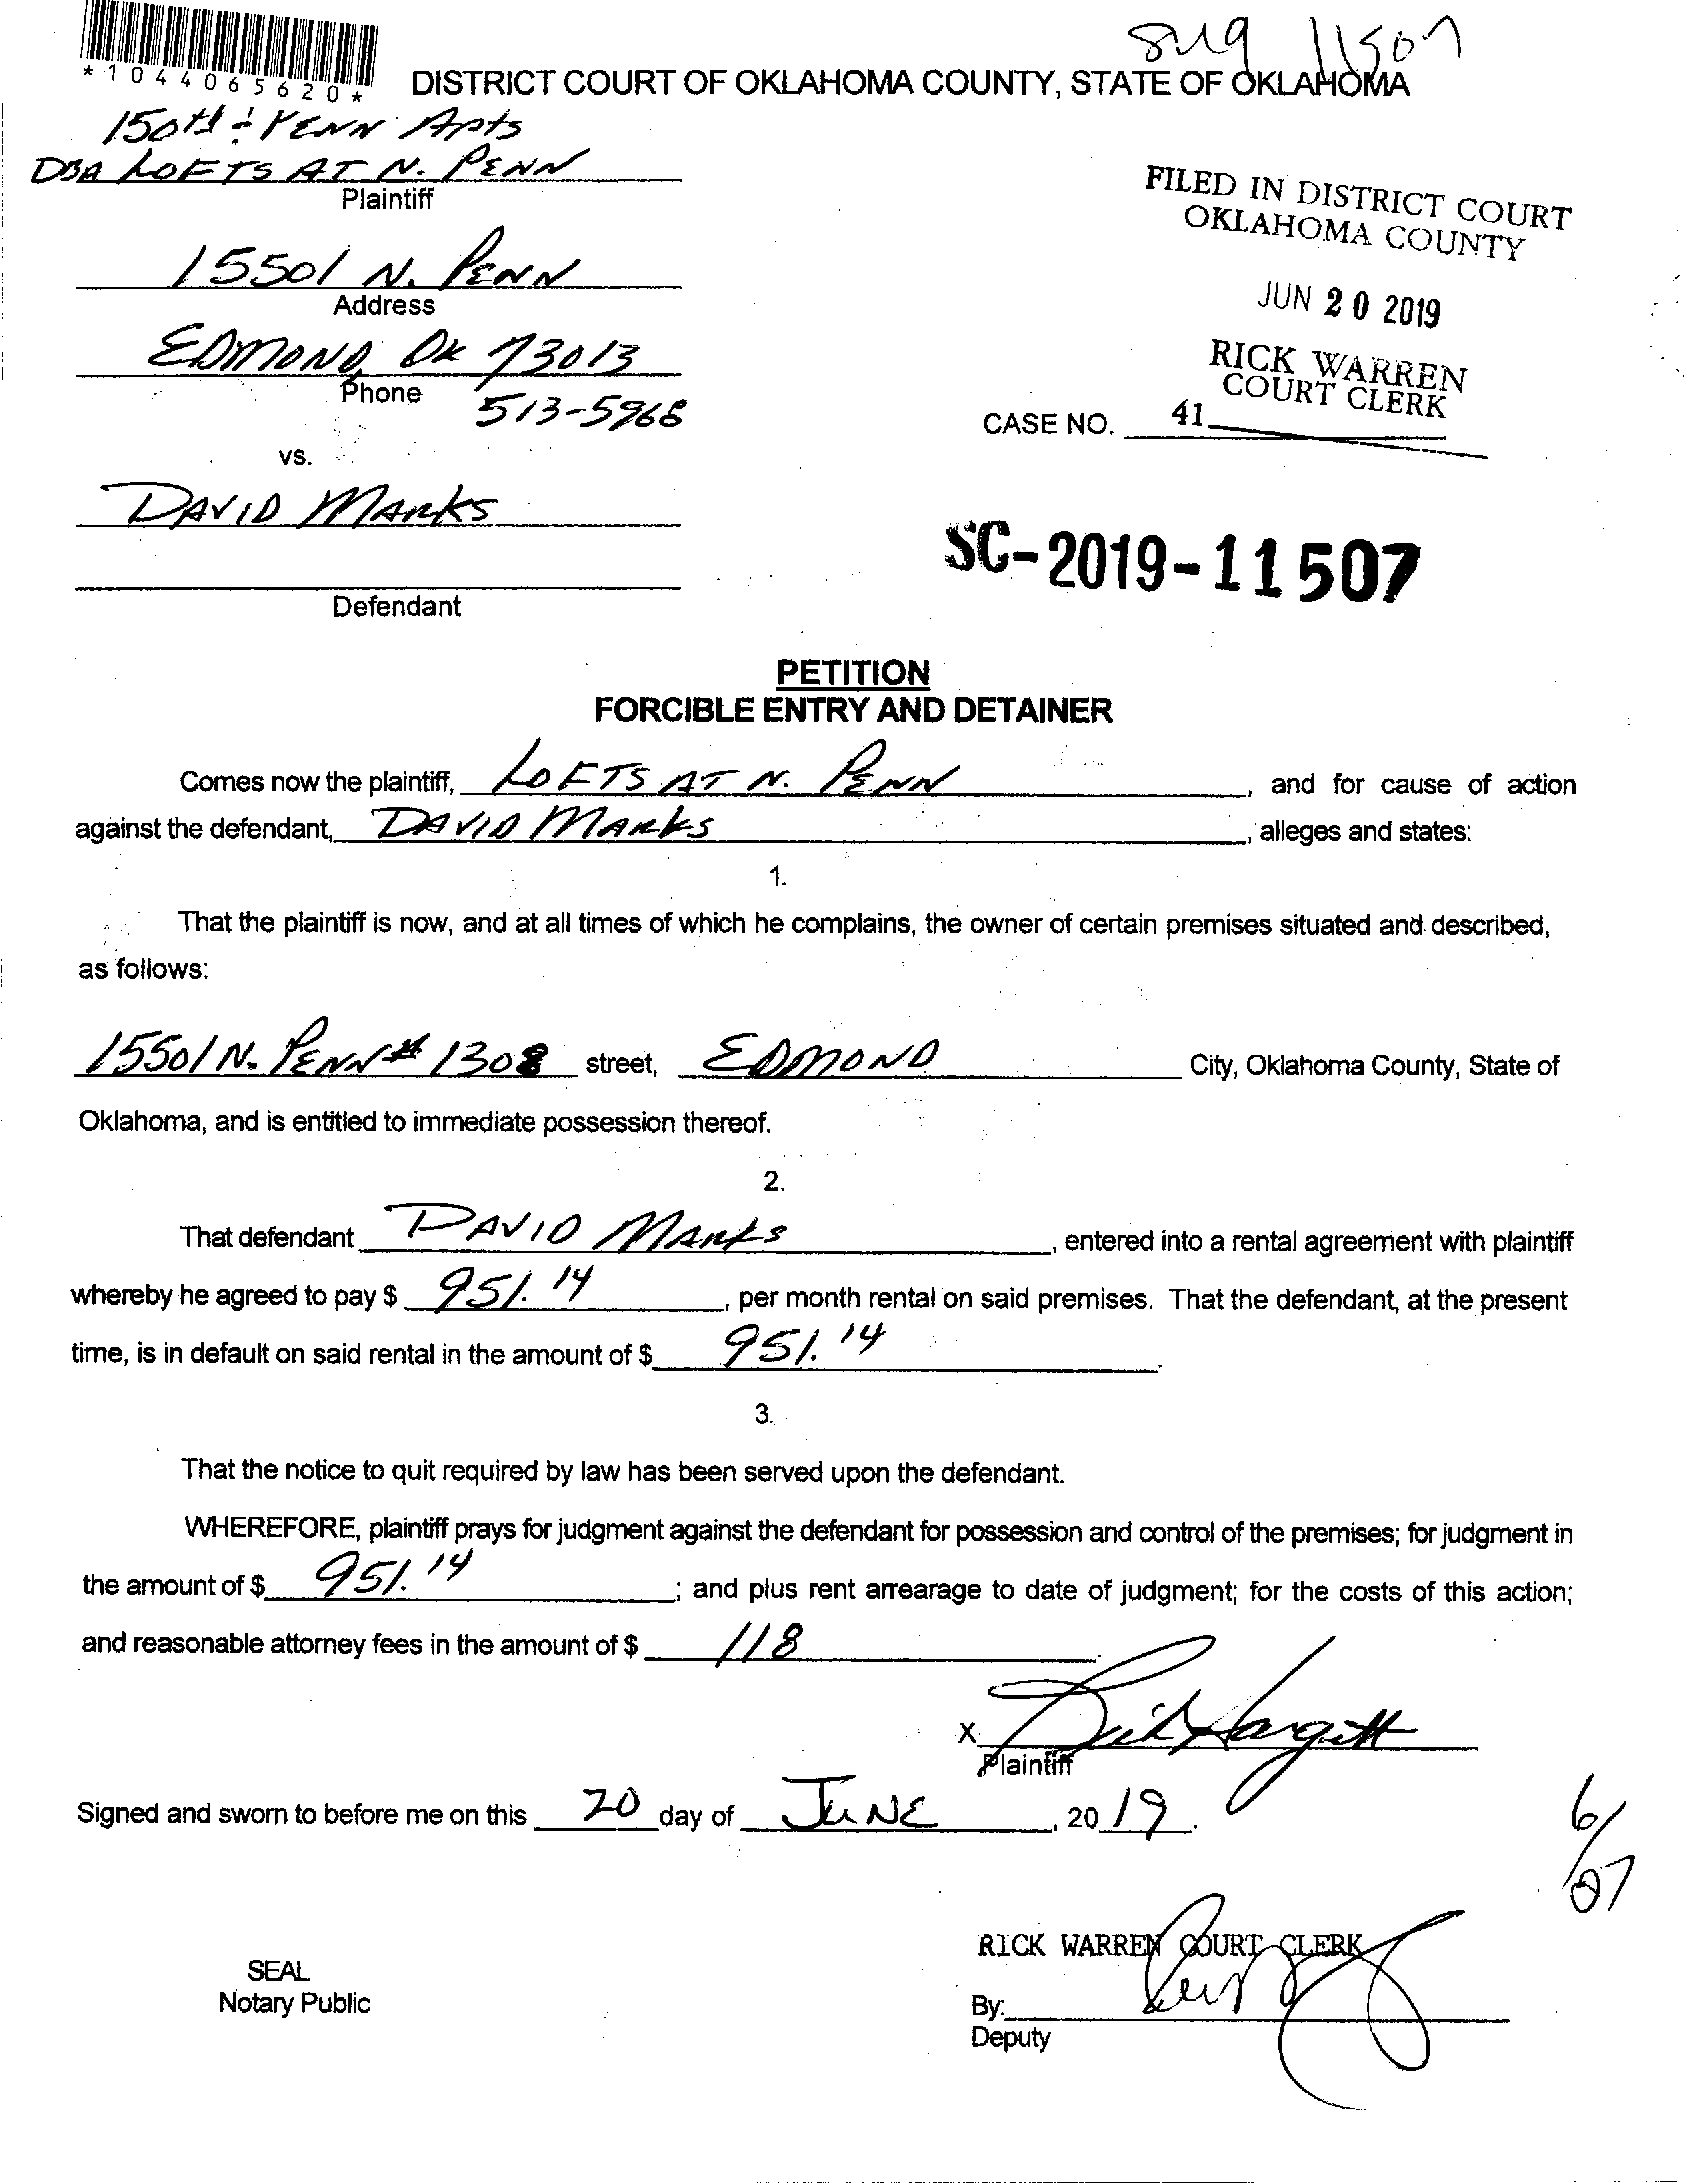 SM19 11507
*1044065620*
DISTRICT COURT OF OKLAHOMA COUNTY, STATE OF OKLAHOMA
150th & PENN Apts
DBA LOFTS AT N. PENN
Plaintiff
FILED IN DISTRICT COURT
OKLAHOMA COUNTY
15501 N. PENN
Address
JUN 20 2019
EDMOND, OK 73013
Phone
513-5968
RICK WARREN
COURT CLERK
CASE NO. 41
vs.
DAVID MARKS
SC-2019-11507
Defendant
PETITION
FORCIBLE ENTRY AND DETAINER
Comes now the plaintiff, LOFTS AT N. PENN, and for cause of action
against the defendant, DAVID MARKS, alleges and states:
1.
That the plaintiff is now, and at all times of which he complains, the owner of certain premises situated and described,
as follows:
15501 N. PENN # 1308 street, EDMOND City, Oklahoma County, State of
Oklahoma, and is entitled to immediate possession thereof.
2.
That defendant DAVID MARKS, entered into a rental agreement with plaintiff
whereby he agreed to pay $ 951.14, per month rental on said premises. That the defendant, at the present
time, is in default on said rental in the amount of $ 951.14.
3.
That the notice to quit required by law has been served upon the defendant.
WHEREFORE, plaintiff prays for judgment against the defendant for possession and control of the premises; for judgment in
the amount of $ 951.14; and plus rent arrearage to date of judgment; for the costs of this action;
and reasonable attorney fees in the amount of $ 118.
X
Plaintiff
Signed and sworn to before me on this 20 day of JUNE, 2019.
6/27
RICK WARREN COURT CLERK
SEAL
Notary Public
By:
Deputy